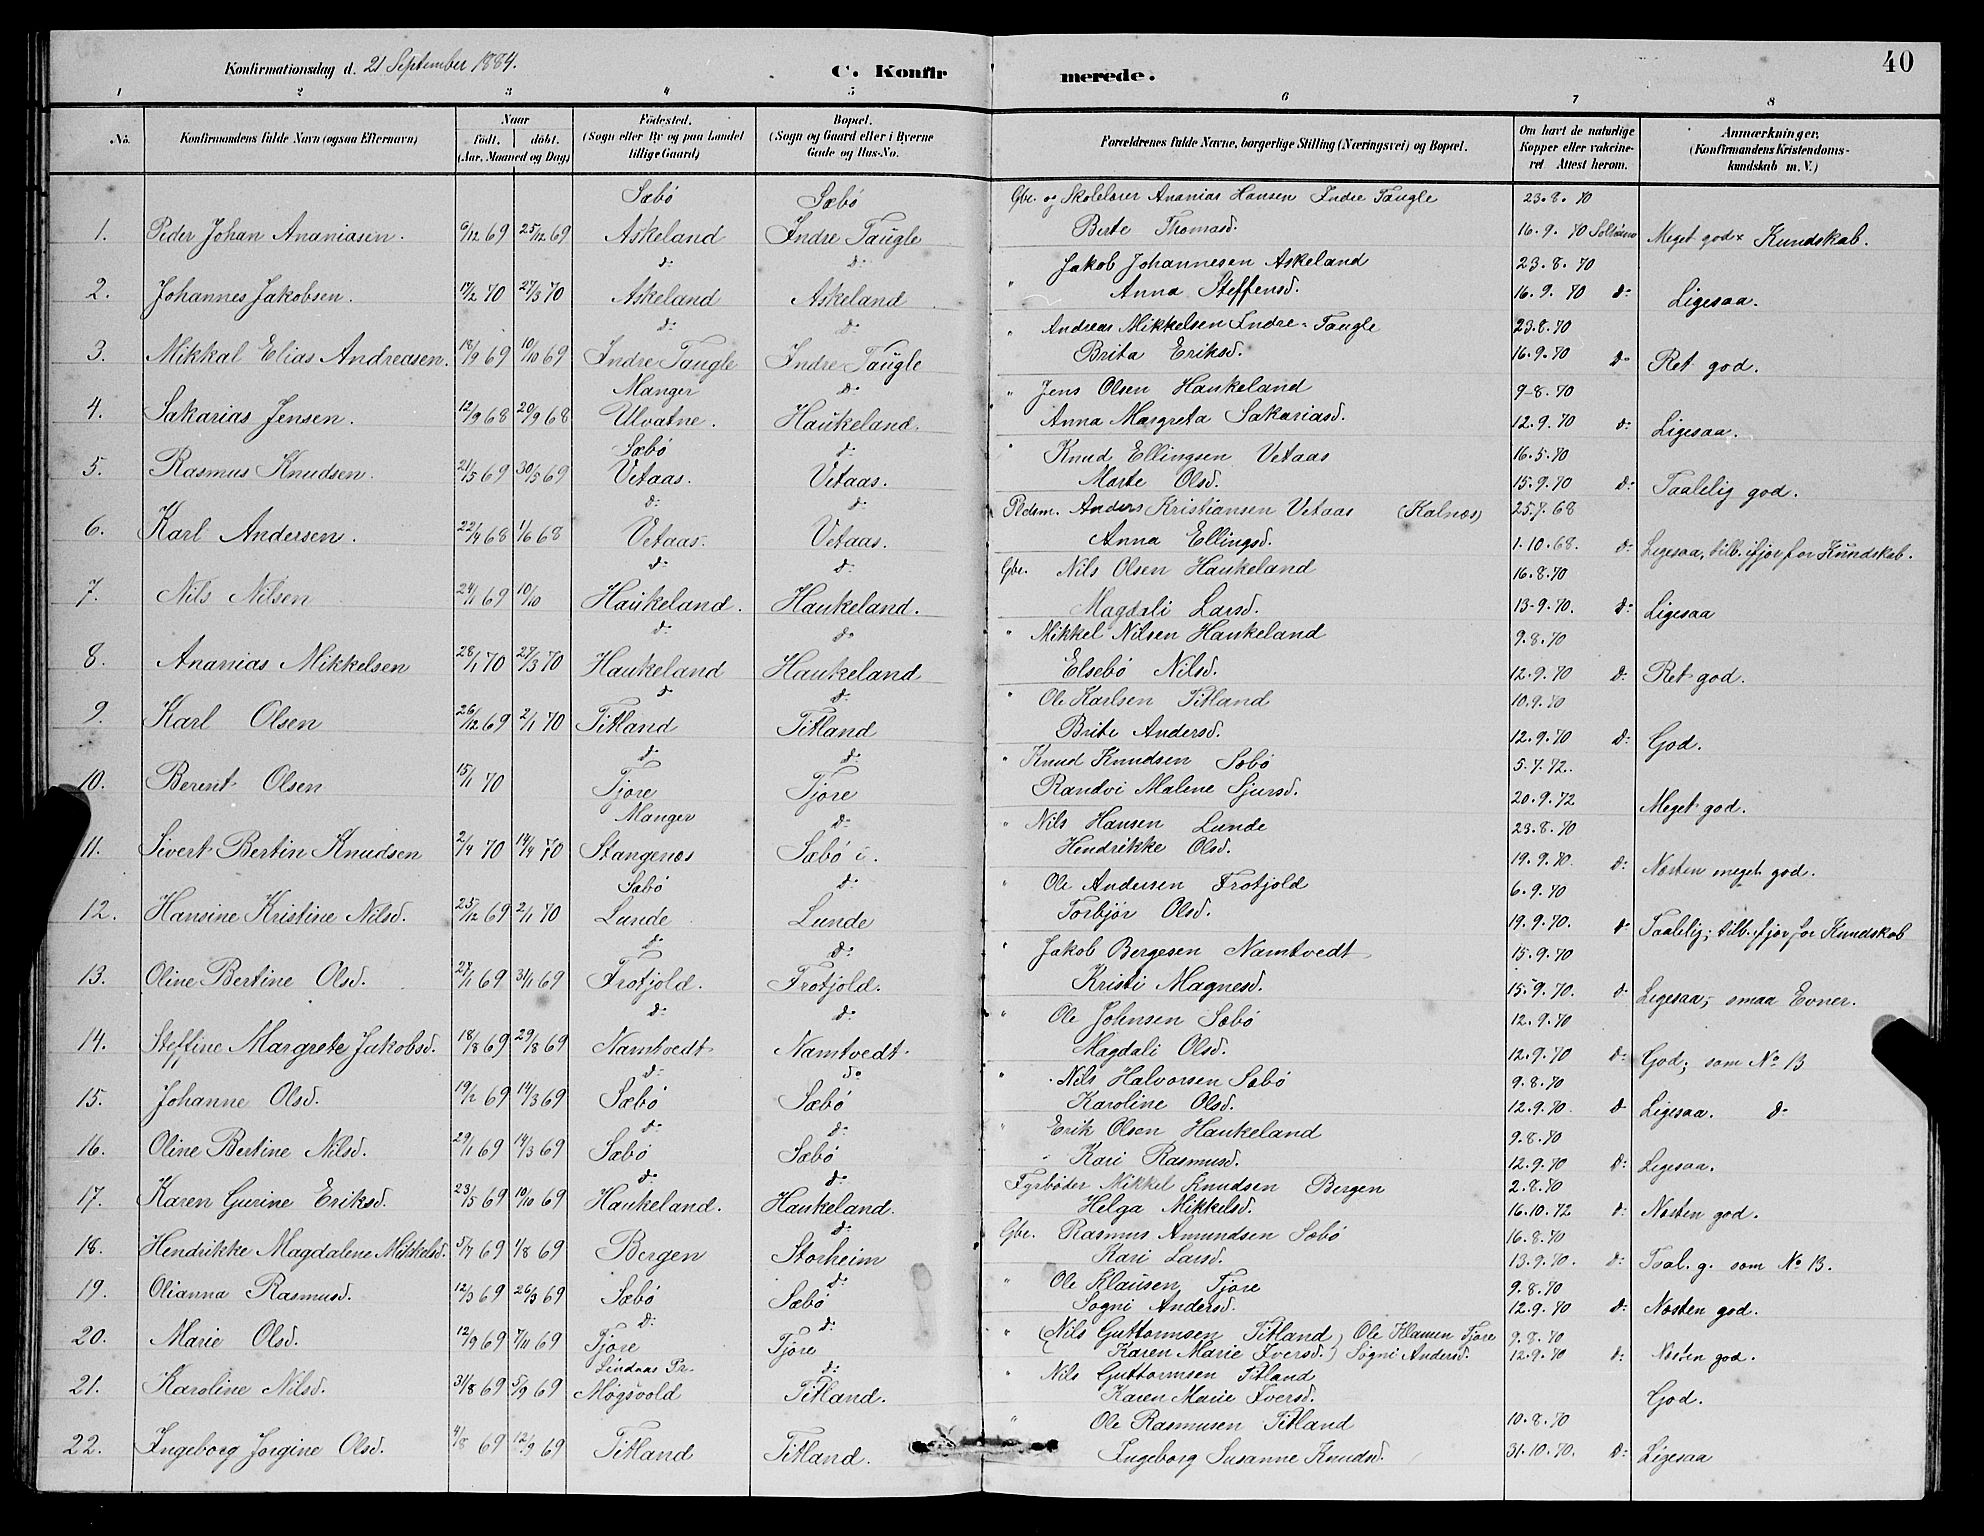 40
Konfirmationsdag d. 21 September 1884. C. Konfir merede.
1 2 3 4 5 6 7 8
No. Konfirmandens fulde Navn (ogsaa Efternavn) Naar födt. döbt. (Aar, Maaned og Dag) Födested. (Sogn eller By og paa Landet tillige Gaard) Bopæl. (Sogn og Gaard eller i Byerne Gade og Hus-No. Forældrenes fulde Navne, borgerlige Stilling (Næringsvei) og Bopæl. Om havt de naturlige Kopper eller vakcineret Attest herom. Anmærkninger. (Konfirmandens Kristendomskundskab m. V.)
Sæbö Sæbö Gbr. og Skolelærer Ananias Hansen Indre Taugle 23.8.70
1. Peder Johan Ananiasen. 6/12 69 25/12 69 Askeland Indre Taugle Berte Thomasd. 16.9.70 Meget god Kundskab.
d: d: Jakob Johannesen Askeland 23.8.70
2. Johannes Jakobsen. 17/2 70 27/3 70 Askeland Askeland " Anna Steffensd. 16.9.70 d: Ligesaa.
d: d: " Andreas Mikkelsen Indre Taugle 23.8.70
3. Mikkal Elias Andreasen. 18/9 69 10/10 69 Indre Taugle Indre Taugle Brita Eriksd. 16.9.70 d: Ret god.
Manger d: " Jens Olsen Haukeland 9-8.70
4. Sakarias Jensen. 12/9 68 20/9 68 Ulvatne. Haukeland. Anna Margreta Sakariasd. 12.9.70 d: Ligesaa.
Sæbö d: " Knud Ellingsen Vetaas 16.5.70
5. Rasmus Knudsen. 21/5 69 30/5 69 Vetaas. Vetaas. Marte Olsd. 15.9.70 d: Taalelig god.
d: d: Pldsm. Anders Kristiansen Vetaas (Kalnæs) 25.7.68
6. Karl Andersen. 22/4 68 1/6 68 Vetaas. Vetaas. Anna Ellingsd. 1.10.68. d: Ligesaa, tilb. ifjor for Kundskab.
d: d: Gbr. Nils Olsen Haukeland 16.8.70
7. Nils Nilsen 24/1 69 10/10 Haukeland. Haukeland. Magdali Larsd. 13-9.70. d: Ligesaa
d: d: " Mikkel Nilsen Haukeland 9.8.70
8. Ananias Mikkelsen 28/1 70 27/3 70 Haukeland Haukeland Elsebö Nilsd. 12.9.70 d: Ret god.
d: d: " Ole Karlsen Titland 10.9.70
9. Karl Olsen 26/12 69 2/1 70 Titland Titland Brite Andersd. 12.9.70 d: God.
d: d: " Knud Knudsen Sæbö 5.7.72.
10. Berent Olsen 15/1 70 Tjore Tjore Randvi Malene Sjursd. 20.9.72 Meget god.
Manger d: " Nils Hansen Lunde 23.8.70
11. Sivert Bertin Knudsen 2/4 70 14/4 70 Stangenes Sæbö i. Hendrikke Olsd. 19.9.70. d: Næsten meget god.
Sæbö d: " Ole Andersen Frotjold 6.9.70
12. Hansine Kristine Nilsd. 25/12 69 2/1 70 Lunde Lunde Torbjör Olsd. 19.9.70. d: Taalelig; tilb. ifjor for Kundskab
d: d: " Jakob Bergesen Namtvedt 15.9.70
13. Oline Bertine Olsd. 27/1 69 31/1 69 Frotjold. Frotjold. Kristi Magnesd. 15.9.70. d: Ligesaa; smaa Evner.
d: d: " Ole Johnsen Sæbö 12.9.70
14. Steffine Margrete Jakobsd. 18/8 69 29/8 69 Namtvedt Namtvedt Magdali Olsd. 12.9.70 d: God; som No 13
d: do " Nils Halvorsen Sæbö 9.8.70
15. Johanne Olsd. 19/2 69 14/3 69 Sæbö Sæbö Karoline Olsd. 12.9.70. d Ligesaa. d:
d: d: " Erik Olsen Haukeland 9.8.70
16. Oline Bertine Nilsd. 29/1 69 14/3 69 Sæbö Sæbö Kari Rasmusd. 12.9.70 d: Ligesaa.
d: d: Fyrböder Mikkel Knudsen Bergen 2.8.70
17. Karen Gurine Eriksd. 23/5 69 10/10 69 Haukeland. Haukeland. Helga Mikkelsd. 16.10.72 d: Næsten god.
d: Gbr. Rasmus Amundsen Sæbö 16.8.70
18. Hendrikke Magdalene Mikkelsd. 5/7 69 1/8 69 Bergen Storheim Kari Larsd. 13.9.70. d: Taal. g. som No 13.
d: " Ole Klausen Tjore 9.8.70
19. Olianna Rasmusd. 12/3 69 26/3 69 Sæbö Sæbö Sogni Andersd. 12.9.70 d: Næsten god.
d: d: " (Nils Guttormsen Titland) Ole Klausen Tjore 9.8.70
20. Marie Olsd. 12/9 69 7/11 69 Tjore Tjore Karen Marie Iversd.) Sogni Andersd. 12.9.70 d: Næsten god.
Lindaas Pr. d: " Nils Guttormsen Titland
21. Karoline Nilsd. 31/8 69 5/9 69 Mögsvold Titland. Karen Marie Iversd. God.
" Ole Rasmusen Titland 10.8.70
22. Ingeborg Jorgine Olsd. 4/8 69 12/9 69 Titland Titland. Ingeborg Susanne Knudsd. 31.10.70. d: Ligesaa